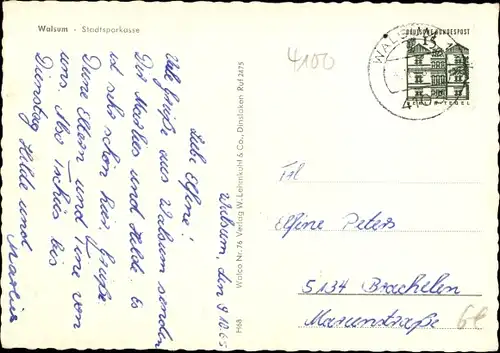 Walsum - Stadtsparkasse
4100
DEUTSCHE BUNDESPOST
15
WALSUM
Walsum, den 9.10.65
Liebe Elfine!
Viele Grüße aus Walsum senden
Dir Marlies und Hilde. Es
ist sehr schön hier. Grüße
Deine Eltern und Tine von
uns. Also Tschüs bis
Dienstag Hilde und
Marlies
H68 Walco Nr. 76 Verlag W. Lehmkuhl & Co., Dinslaken Ruf 2475
Frl
Elfine Peters
5134 Brachelen
Marienstraße
6€